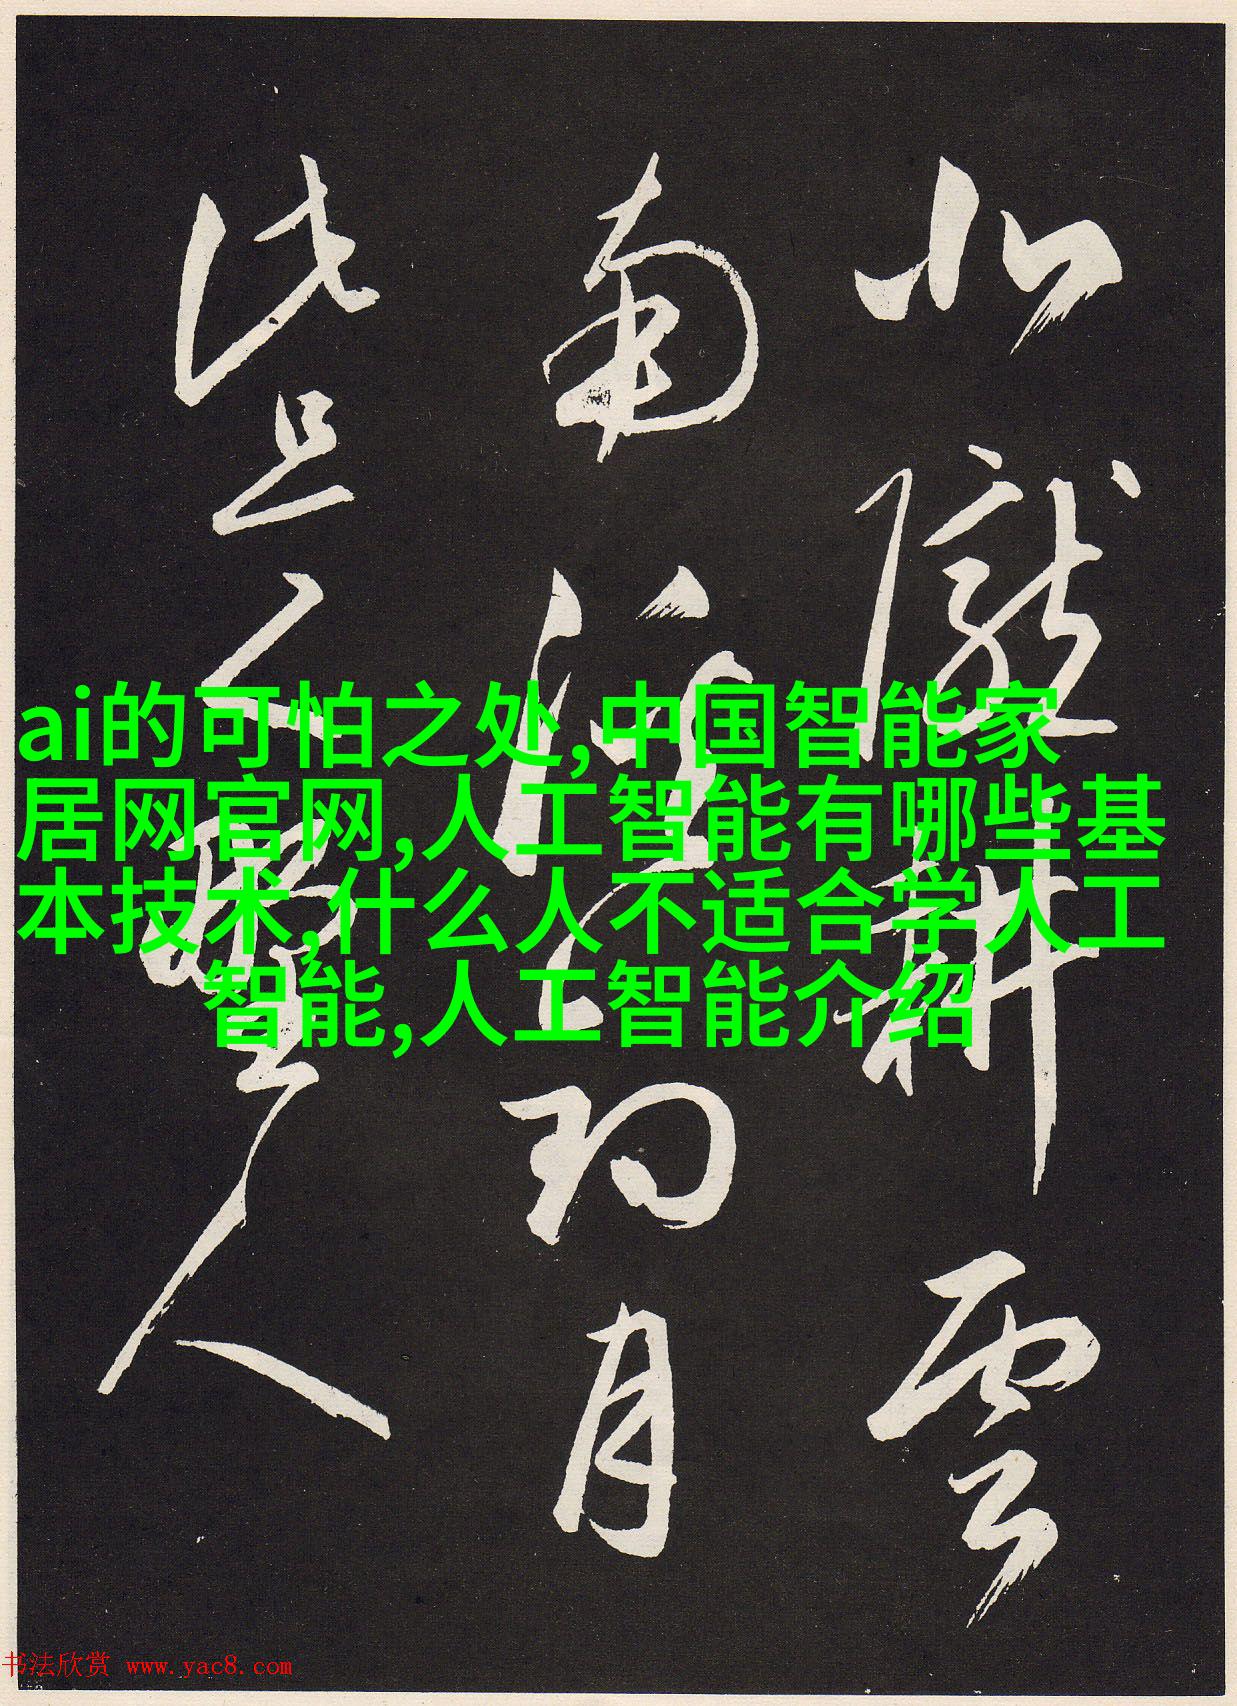 北隴耕雲
南溪釣月
此是野人
ai的可怕之处,中国智能家
居网官网,人工智能有哪些基
本技术,什么人不适合学人工
智能,人工智能介绍
书法欣赏 www.yac8.com